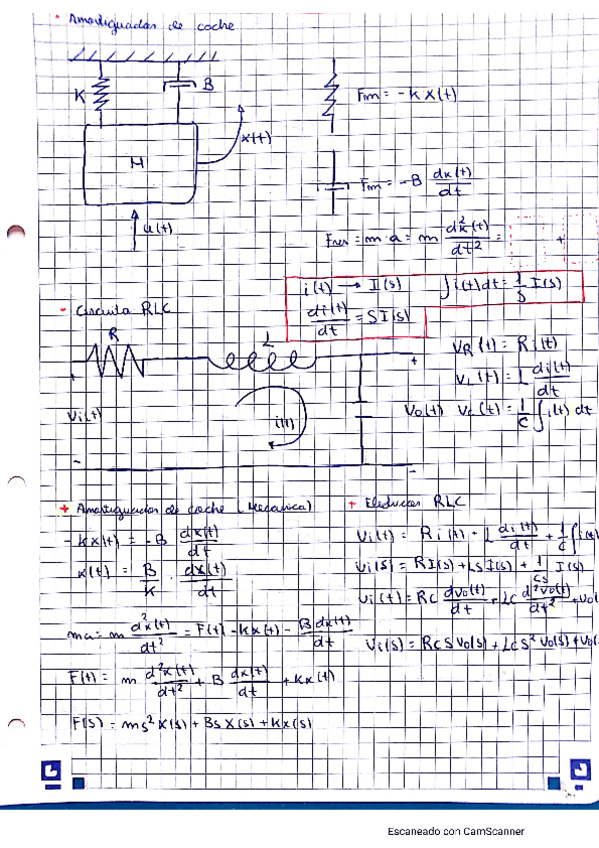 Amortiguador de coche
K
B
M
x(t)
u(t)
Fm = -K x(t)
Fm = -B dx(t)/dt
Fres = m·a = m d²x(t)/dt² =
+
i(t) → I(s) ∫i(t)dt = 1/s I(s)
di(t)/dt = SI(s)
- Circuito RLC
R
L
+
+
Vi(t)
i(t)
Vo(t)
-
-
VR(t) = R i(t)
VL(t) = L di(t)/dt
Vc(t) = 1/C ∫i(t) dt
+ Amortiguador de coche (Mecánica)
- Kx(t) = -B dx(t)/dt
x(t) = B/K · dx(t)/dt
ma = m d²x(t)/dt² = F(t) - Kx(t) - B dx(t)/dt
F(t) = m d²x(t)/dt² + B dx(t)/dt + Kx(t)
F(s) = ms² X(s) + Bs X(s) + Kx(s)
+ Eléctrico RLC
Vi(t) = R i(t) + L di(t)/dt + 1/C ∫i(t)
Vi(s) = R I(s) + LS I(s) + 1/CS I(s)
Vi(t) = RC dvo(t)/dt + LC d²vo(t)/dt² + vo(
Vi(s) = RCS Vo(s) + LCS² Vo(s) + Vo(
Escaneado con CamScanner